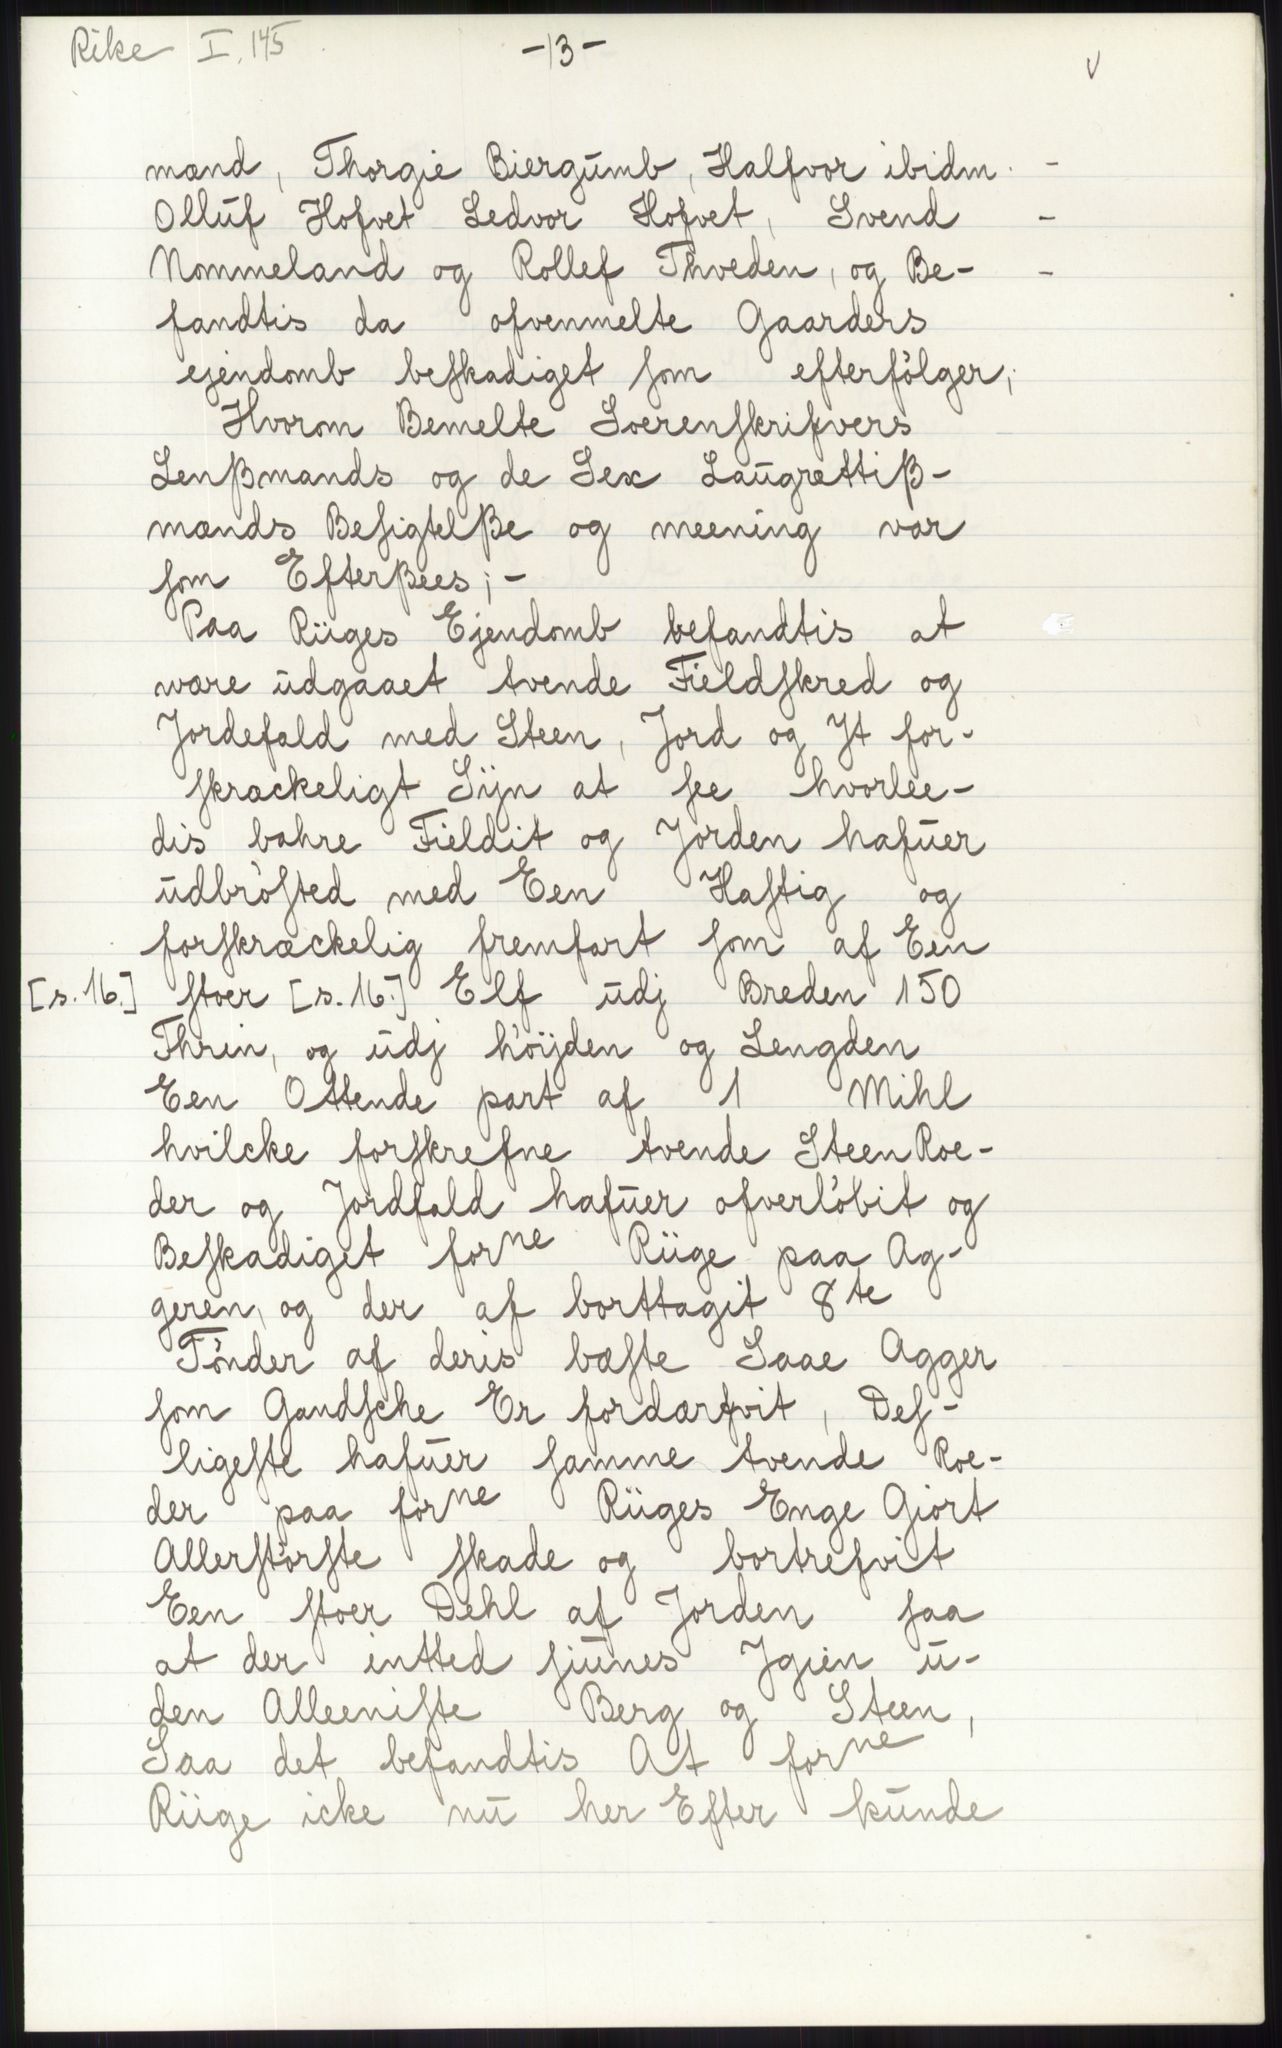 Rike I, 145
-13-
v
mænd, Thorgie Biergumb, Halfvor ibidm. -
Olluf Hofvet Sedvor Hofvet, Svend -
Nommeland og Rollef Thveden, og Be- -
fandtis da ofvenmelte Gaarders
ejendomb beskadiget som efterfølger;
Hvorom Bemelte Soerenskrifvers
Lenßmands og de Sex Laugrettiß-
mænds Besigtelße og meening var
som Efterßees; -
Paa Rüges Ejendomb befandtis at
være udgaaet tvende Fieldskred og
Jordefald med Steen, Jord og It for-
skrackeligt Sÿn at see hvorlee-
dis bahre Fieldit og Jorden hafuer
udbrøsted med Een Hastig og
forskræckelig fremfart som af Een
[s. 16.] stoer [s. 16.] Elf udj Breden 150
Thrin, og udj høÿden og Lengden
Een Ottende part af 1 Mihl
hvilcke forskrefne tvende SteenRoe-
der og Jordfald hafuer ofverløbit og
Beskadiget forne Rüge paa Ag-
geren, og der af borttagit 8te
Tønder af deris bæste Saae Agger
som Gandsche Er fordærfvit, Des-
ligeste hafuer samme tvende Roe-
der paa forne Rüges Enge Giort
Allerstørste skade og bortrefvit
Een stoer Dehl af Jorden saa
at der intted siunes Igien u-
den Alleeniste Berg og Steen,
Saa det befandtis At forne
Rüge icke nu her Efter kunde